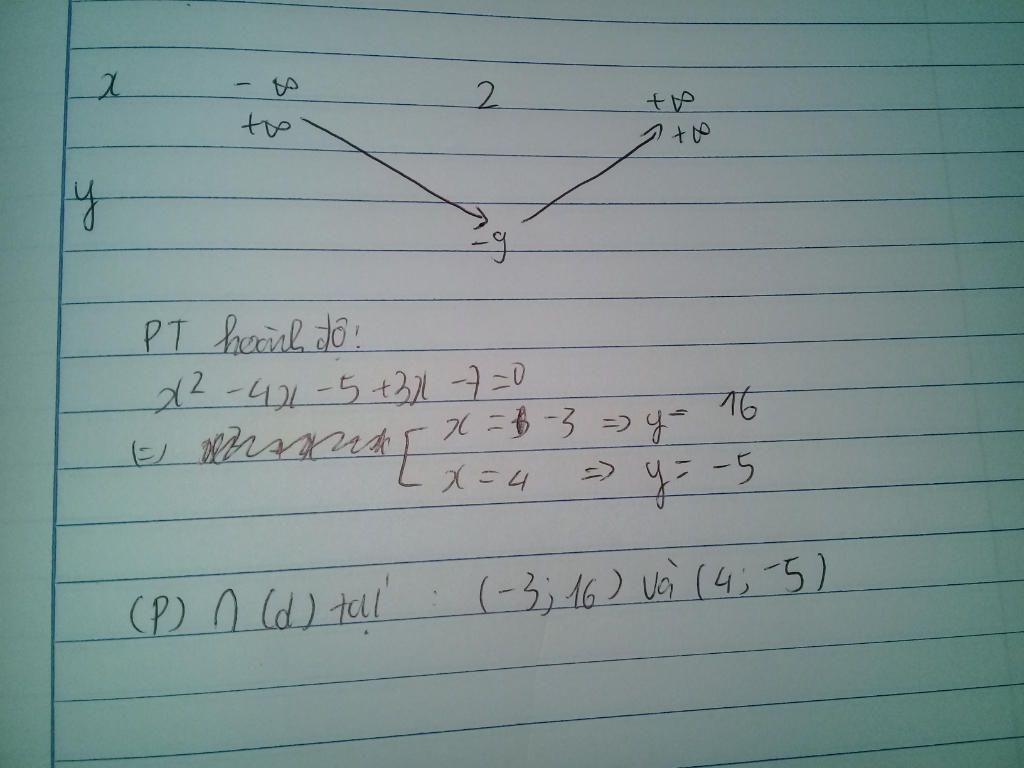 x -∞ 2 +∞
+∞ +∞
y
-9
PT hoành độ:
x² -4x -5 +3x -7 =0
(=) [ x = -3 => y = 16
x = 4 => y = -5
(P) ∩ (d) tại : (-3; 16) và (4; -5)